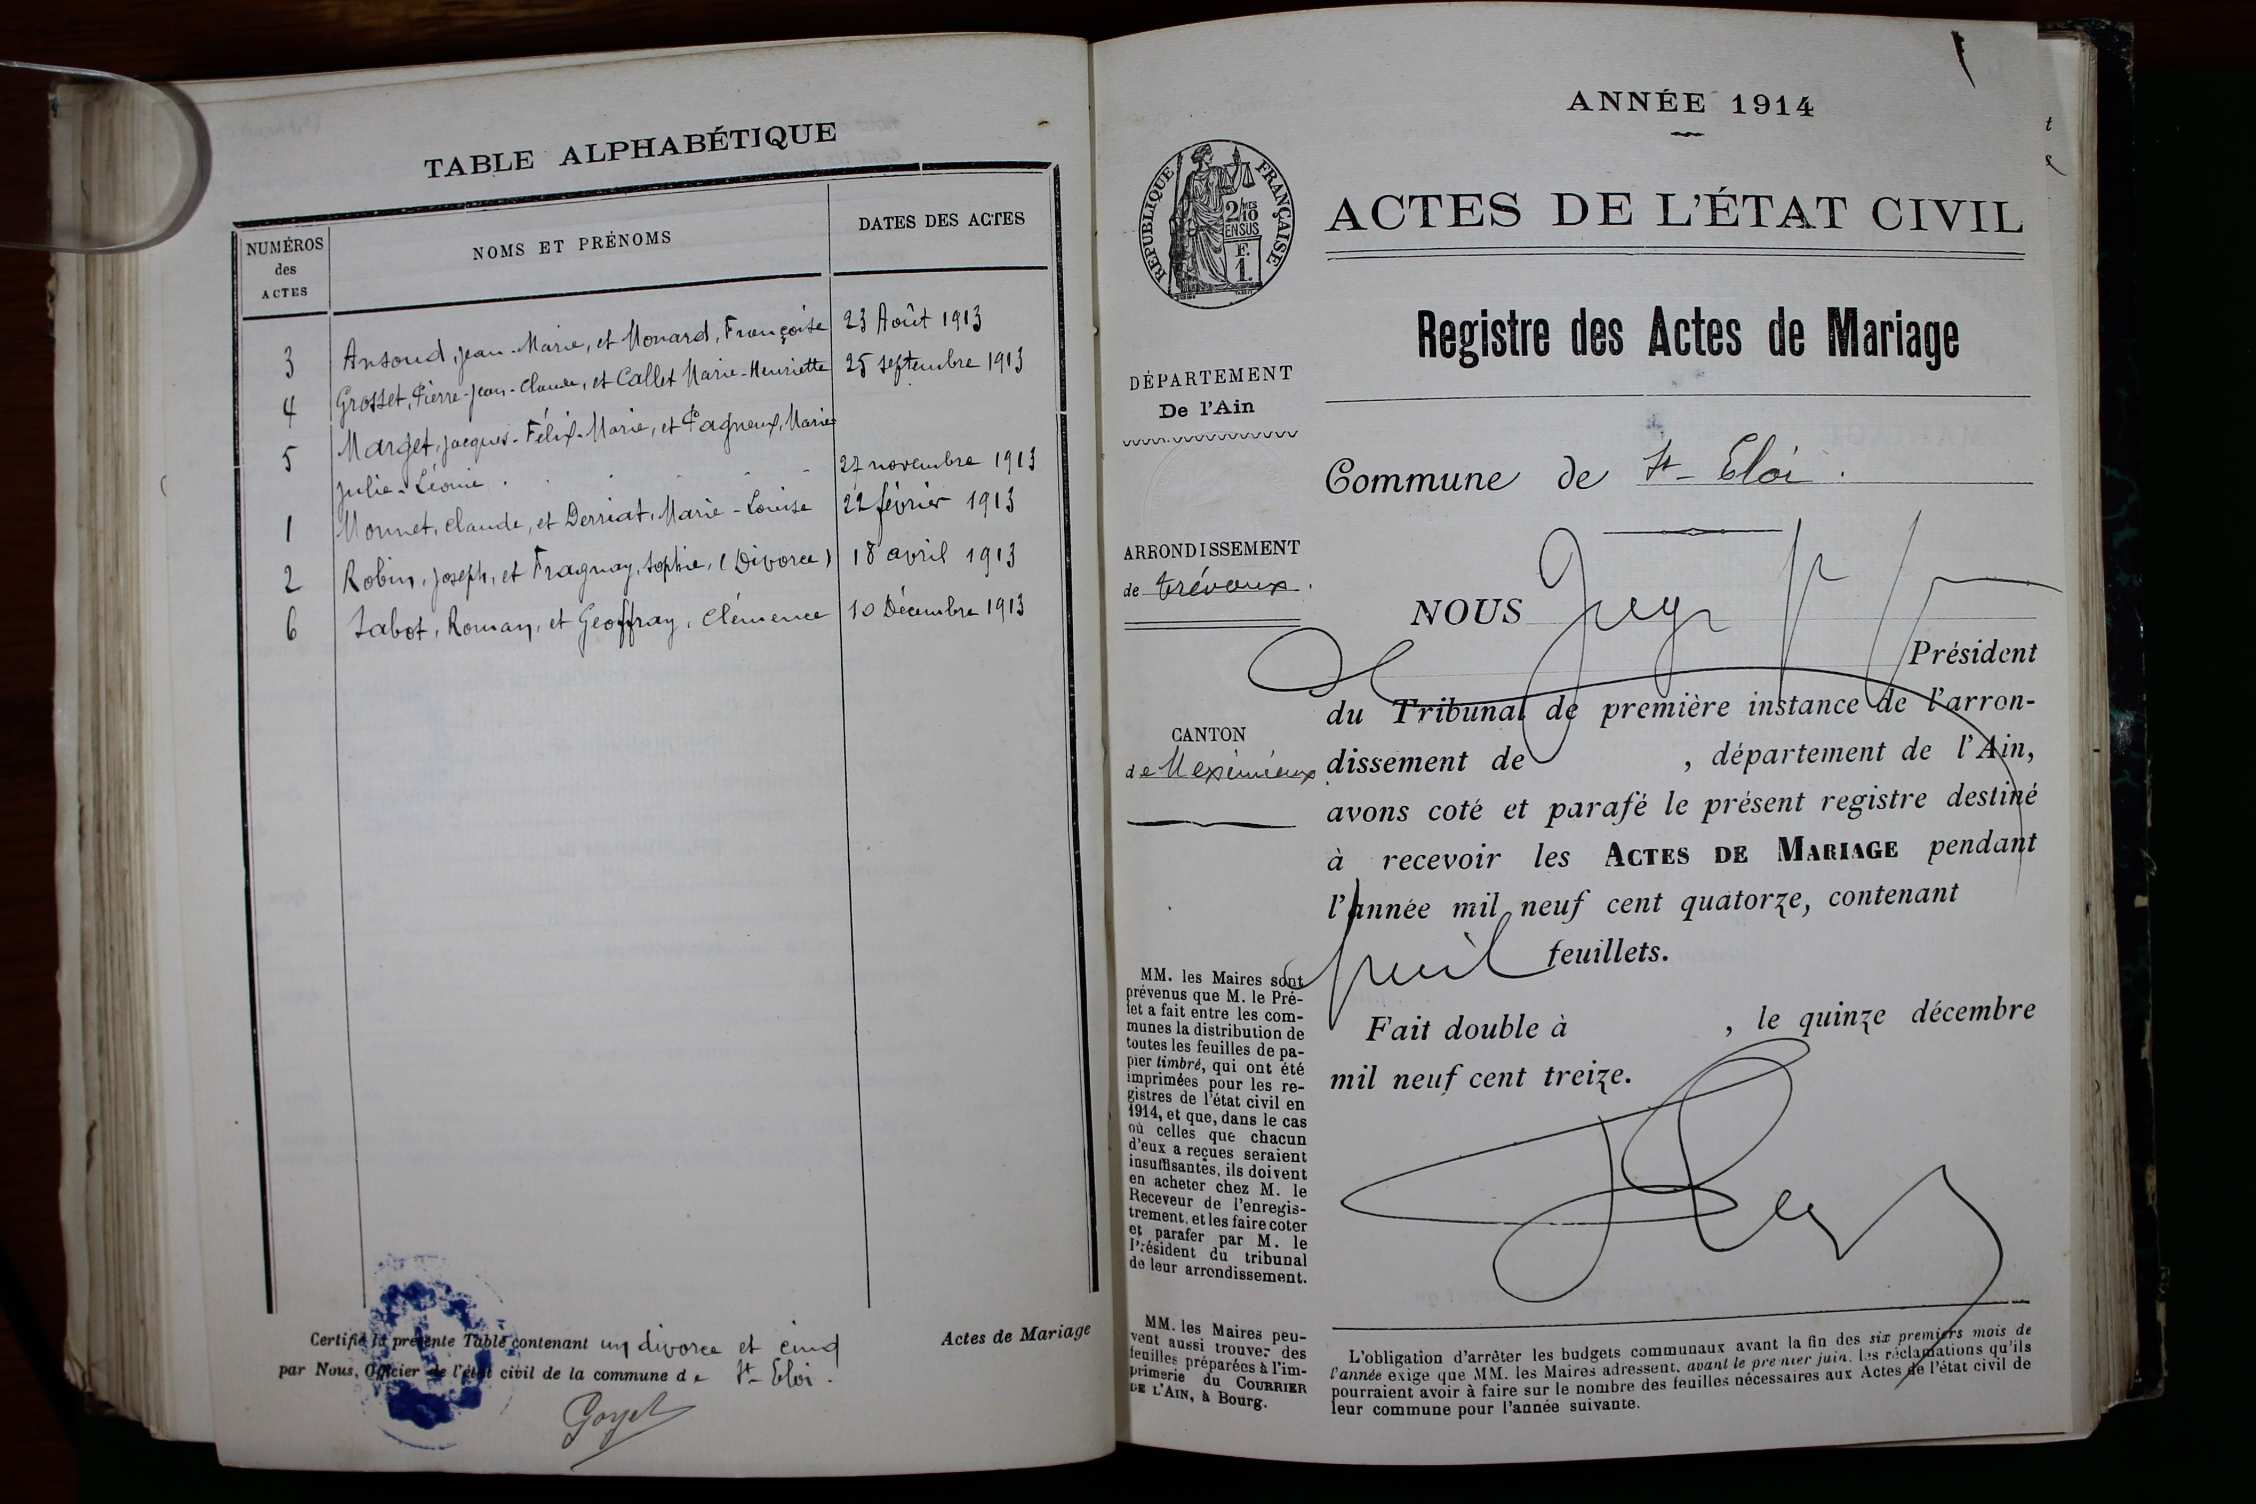 TABLE ALPHABÉTIQUE
NUMÉROS
des
ACTES
NOMS ET PRÉNOMS
DATES DES ACTES
3 Ansoud, Jean-Marie, et Monard, Françoise 23 Août 1913
4 Grosset, Pierre-Jean-Claude, et Callet Marie-Henriette 25 septembre 1913
5 Marget, Jacques-Félix-Marie, et Pagneux, Marie
Julie-Léonie . 27 novembre 1913
1 Monnet, Claude, et Derriat, Marie-Louise 22 février 1913
2 Robin, Joseph, et Fragnay, Sophie, (Divorce) 18 avril 1913
6 Sabot, Roman, et Geoffray, Clémence 10 Décembre 1913
Certifié la présente Table contenant un divorce et cinq Actes de Mariage
par Nous, Officier de l'état civil de la commune de St-Eloi.
Goyet
ANNÉE 1914
RÉPUBLIQUE FRANÇAISE
2/10 MES
EN SUS
F.
1.
ACTES DE L'ÉTAT CIVIL
Registre des Actes de Mariage
DÉPARTEMENT
De l'Ain
Commune de St-Eloi.
ARRONDISSEMENT
de Trévoux.
CANTON
de Meximieux
NOUS
Président
du Tribunal de première instance de l'arron-
dissement de , département de l'Ain,
avons coté et parafé le présent registre destiné
à recevoir les ACTES DE MARIAGE pendant
l'année mil neuf cent quatorze, contenant
feuillets.
Fait double à , le quinze décembre
mil neuf cent treize.
MM. les Maires sont
prévenus que M. le Pré-
fet a fait entre les com-
munes la distribution de
toutes les feuilles de pa-
pier timbré, qui ont été
imprimées pour les re-
gistres de l'état civil en
1914, et que, dans le cas
où celles que chacun
d'eux a reçues seraient
insuffisantes, ils doivent
en acheter chez M. le
Receveur de l'enregis-
trement, et les faire coter
et parafer par M. le
Président du tribunal
de leur arrondissement.
MM. les Maires peu-
vent aussi trouver des
feuilles préparées à l'im-
primerie du COURRIER
DE L'AIN, à Bourg.
L'obligation d'arrêter les budgets communaux avant la fin des six premiers mois de
l'année exige que MM. les Maires adressent, avant le premier juin, les réclamations qu'ils
pourraient avoir à faire sur le nombre des feuilles nécessaires aux Actes de l'état civil de
leur commune pour l'année suivante.